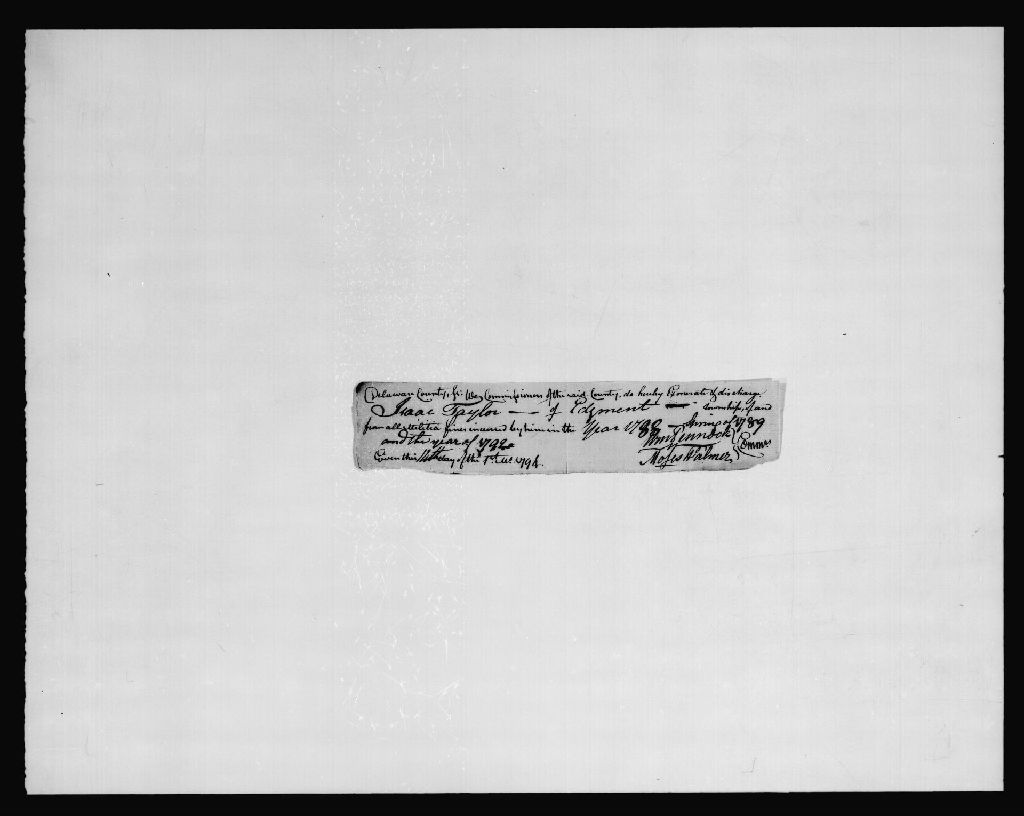 Delaware County, Ss. We Commissioners of the said County, do hereby Exonerate & discharge
Isaac Taylor — of Edgment — township, of and
from all Militia fines incured by him in the Year 1788 — Spring of 1789
and the year of 1792
Wm Pennock
Given this day of the 1st 1794.
Moses Palmer
Commrs